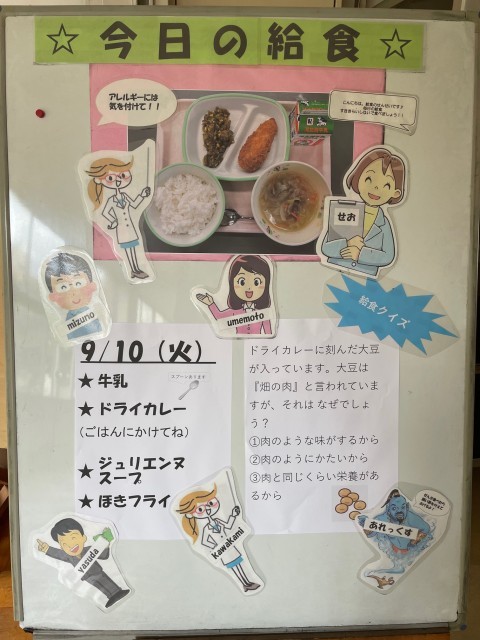 ☆今日の給食☆
アレルギーには
気を付けて！！
せお
mizuno
umemoto
給食クイズ
9/10（火）
スプーン出ります
★ 牛乳
★ ドライカレー
（ごはんにかけてね）
★ ジュリエンヌ
スープ
★ ほきフライ
ドライカレーに刻んだ大豆
が入っています。大豆は
『畑の肉』と言われていま
すが、それは なぜでしょ
う？
①肉のような味がするから
②肉のようにかたいから
③肉と同じくらい栄養があ
るから
yasuda
kawakami
あれっくす